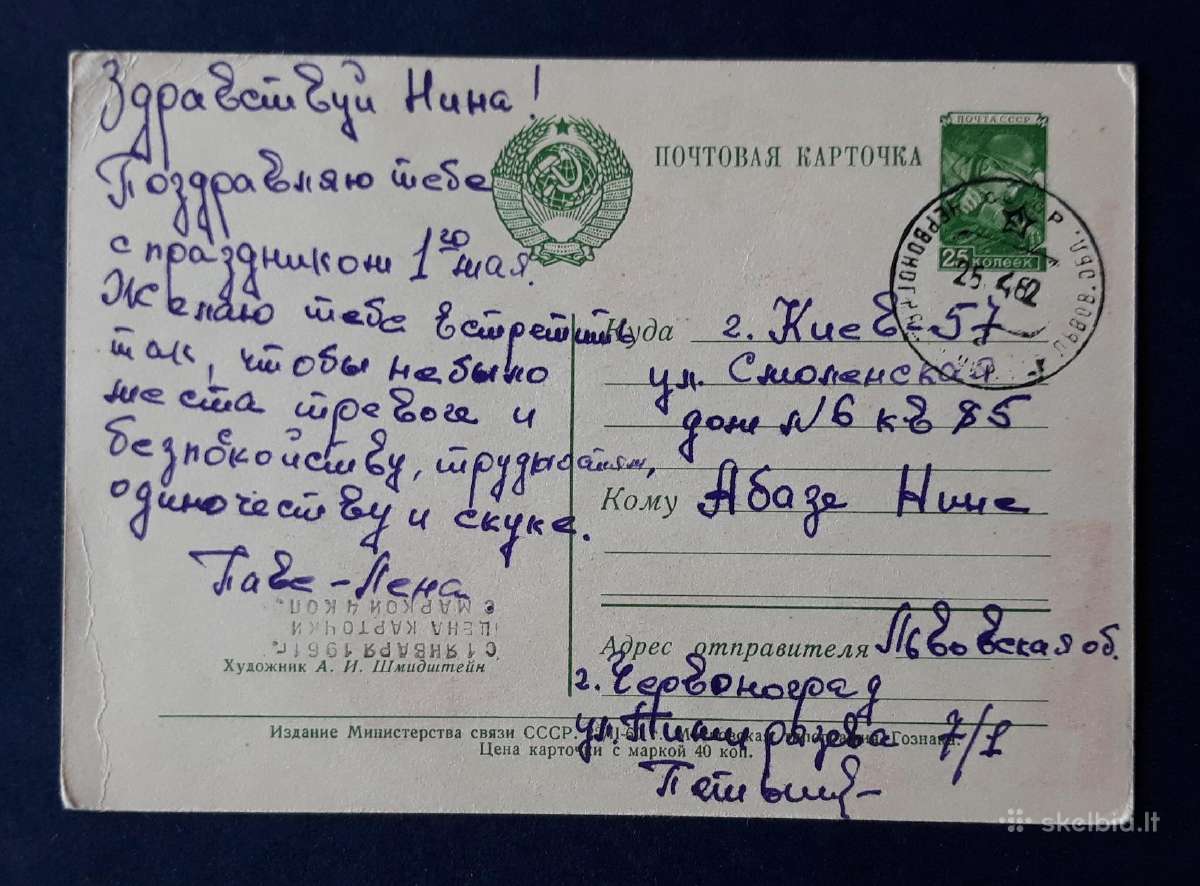 Здравствуй Нина!
Поздравляю тебе
с праздником 1го мая.
Желаю тебе встретить
так, чтобы не было
места тревоге и
безпокойству,
одиночеству и скуке.
Паве-Лена
С 1 ЯНВАРЯ 1961г.
ЦЕНА КАРТОЧКИ
С МАРКОЙ 4 КОП.
Художник А. И. Шмидштейн.
ПОЧТОВАЯ КАРТОЧКА
ПОЧТА СССР
25 КОПЕЕК
25 4 62
Куда г. Киев-57
ул. Смоленская
дом №6 кв 85
Кому Абазе Нине
Адрес отправителя Львовская об.
г. Червоноград
ул. 7/1
Издание Министерства связи СССР. Гознака.
Цена карточки с маркой 40 коп.
skelbid.lt